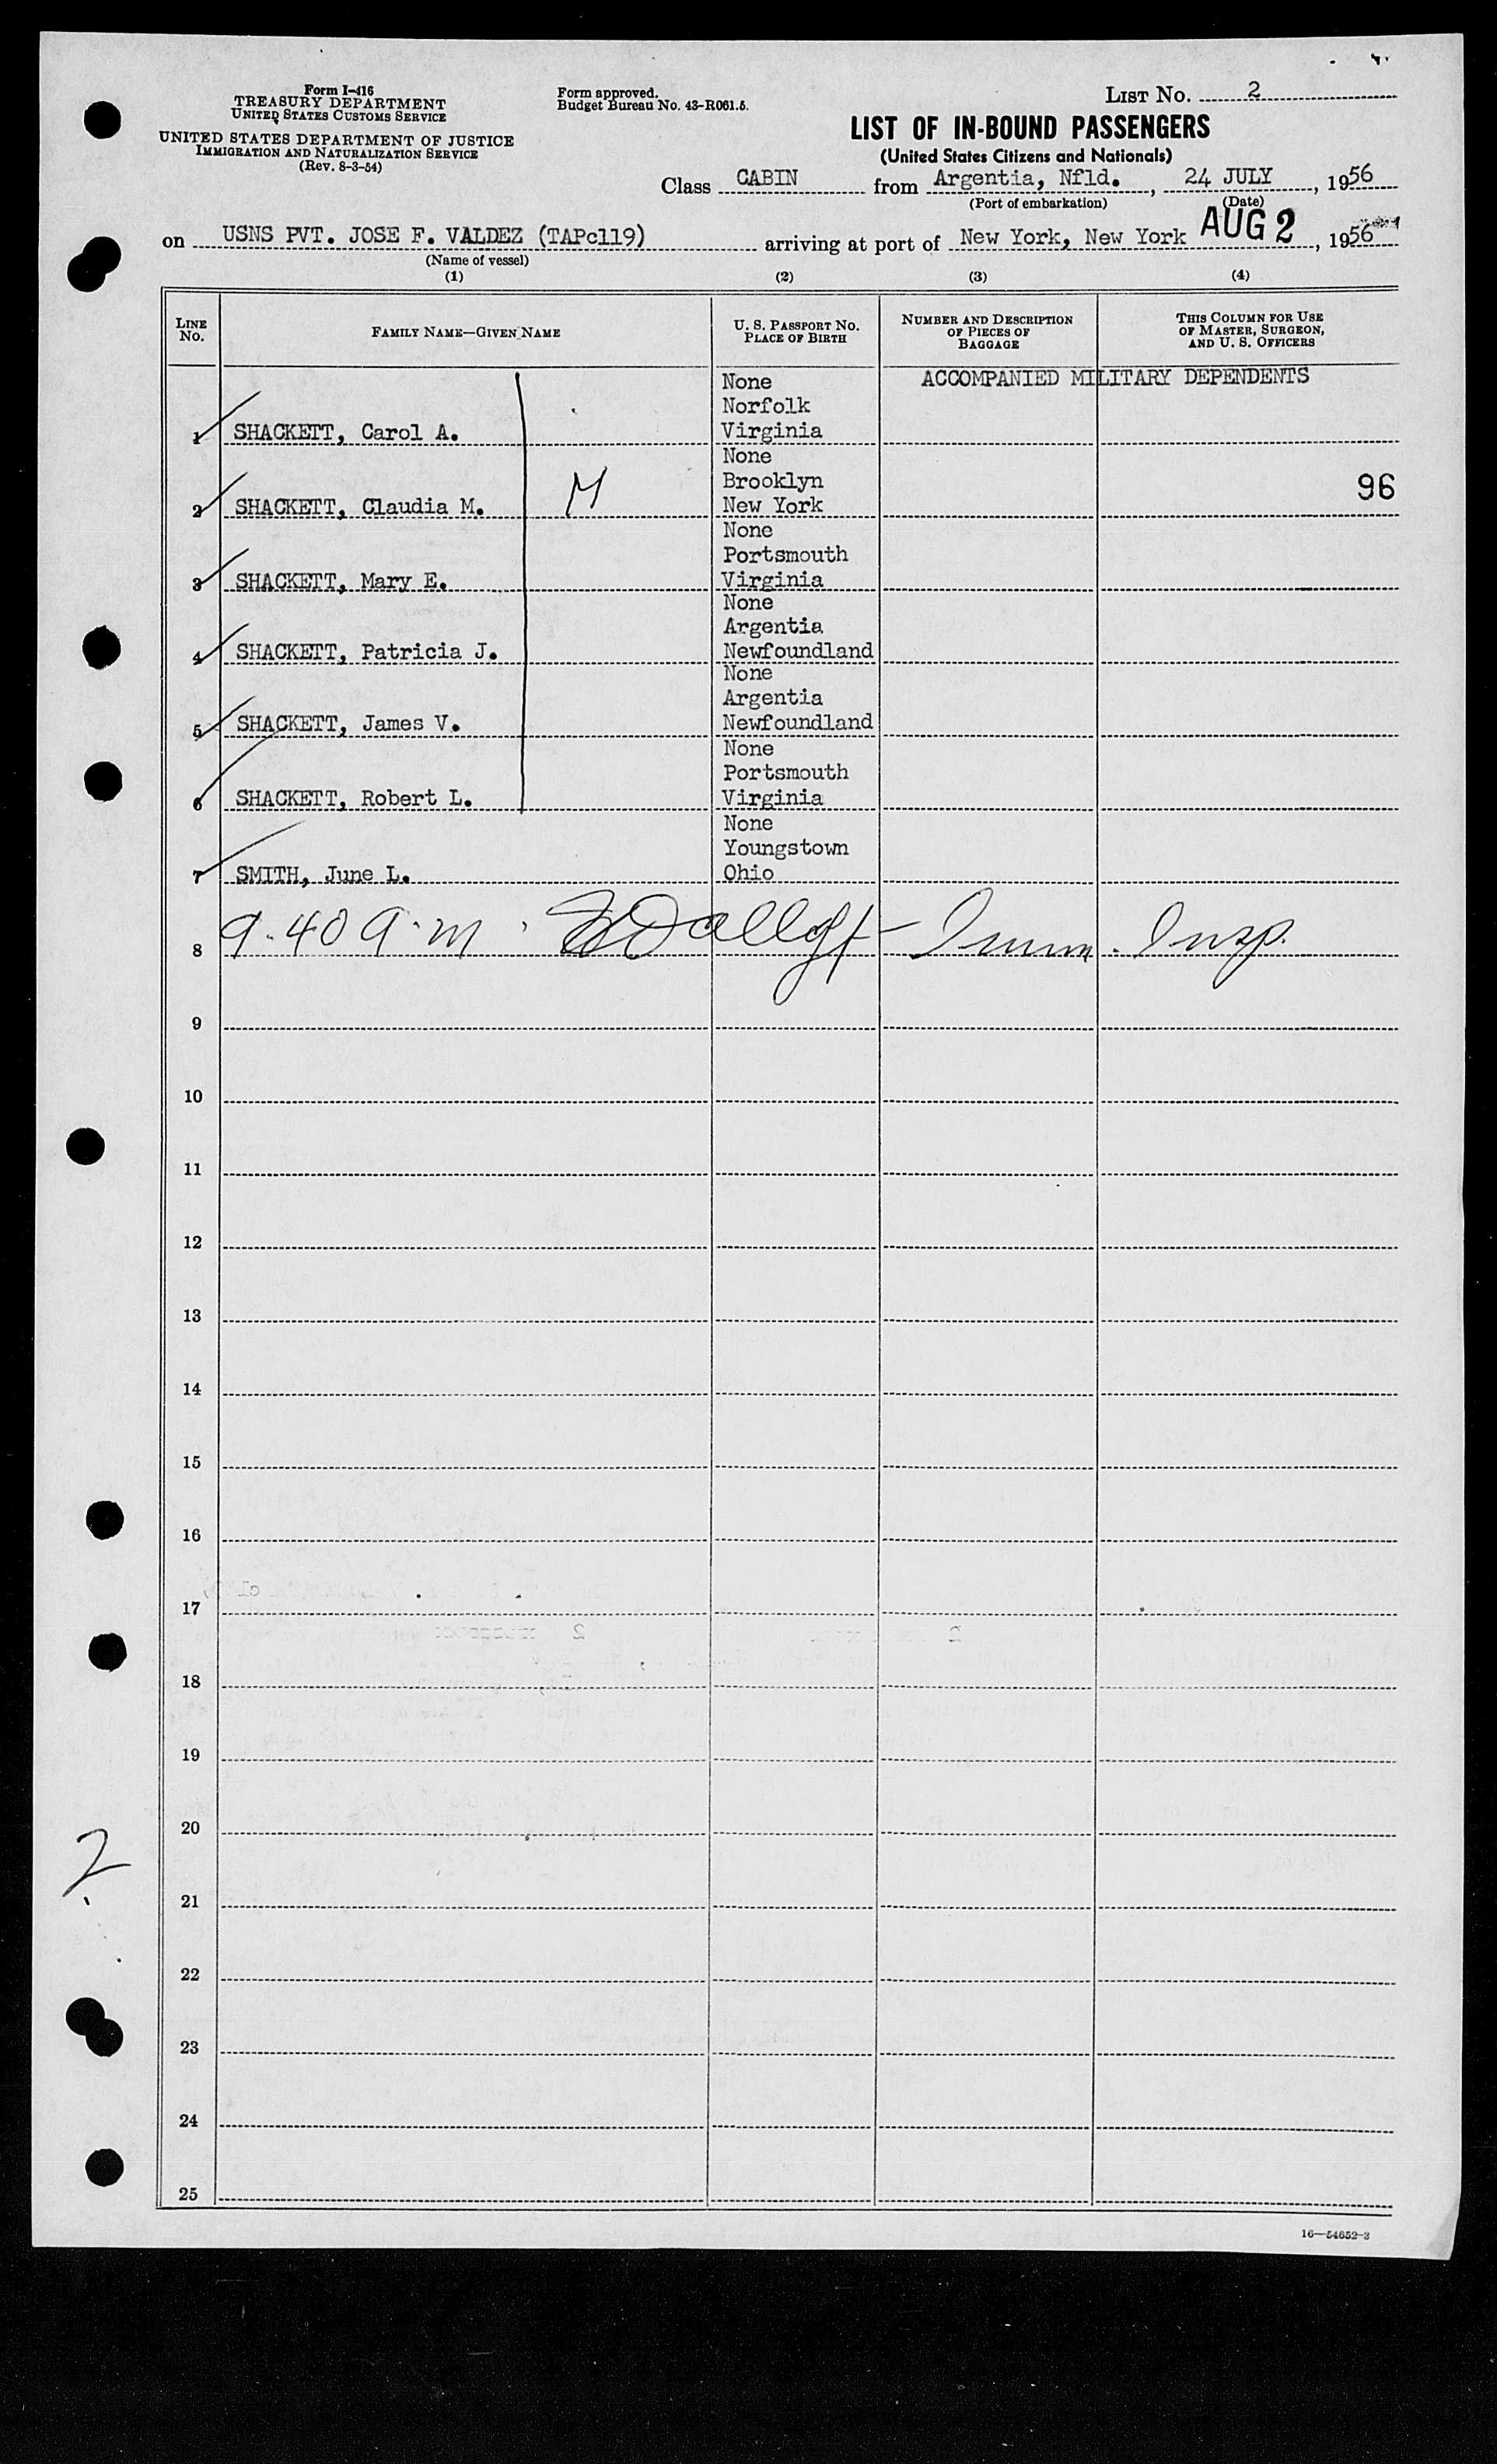 Form I-416
TREASURY DEPARTMENT
UNITED STATES CUSTOMS SERVICE
UNITED STATES DEPARTMENT OF JUSTICE
IMMIGRATION AND NATURALIZATION SERVICE
(Rev. 8-3-54)
Form approved.
Budget Bureau No. 43-R061.5.
LIST No. 2
LIST OF IN-BOUND PASSENGERS
(United States Citizens and Nationals)
Class CABIN from Argentia, Nfld., 24 JULY, 1956
(Port of embarkation) (Date)
on USNS PVT. JOSE F. VALDEZ (TAPc119) arriving at port of New York, New York AUG 2, 1956
(Name of vessel)
(1) (2) (3) (4)
LINE No. FAMILY NAME—GIVEN NAME U. S. PASSPORT No. PLACE OF BIRTH NUMBER AND DESCRIPTION OF PIECES OF BAGGAGE THIS COLUMN FOR USE OF MASTER, SURGEON, AND U. S. OFFICERS
None ACCOMPANIED MILITARY DEPENDENTS
Norfolk
1 SHACKETT, Carol A. Virginia
None
Brooklyn
2 SHACKETT, Claudia M. M New York 96
None
Portsmouth
3 SHACKETT, Mary E. Virginia
None
Argentia
4 SHACKETT, Patricia J. Newfoundland
None
Argentia
5 SHACKETT, James V. Newfoundland
None
Portsmouth
6 SHACKETT, Robert L. Virginia
None
Youngstown
7 SMITH, June L. Ohio
8 9.40 a.m. Imm. Insp.
9
10
11
12
13
14
15
16
17
18
19
20
2
21
22
23
24
25
16—54652-3